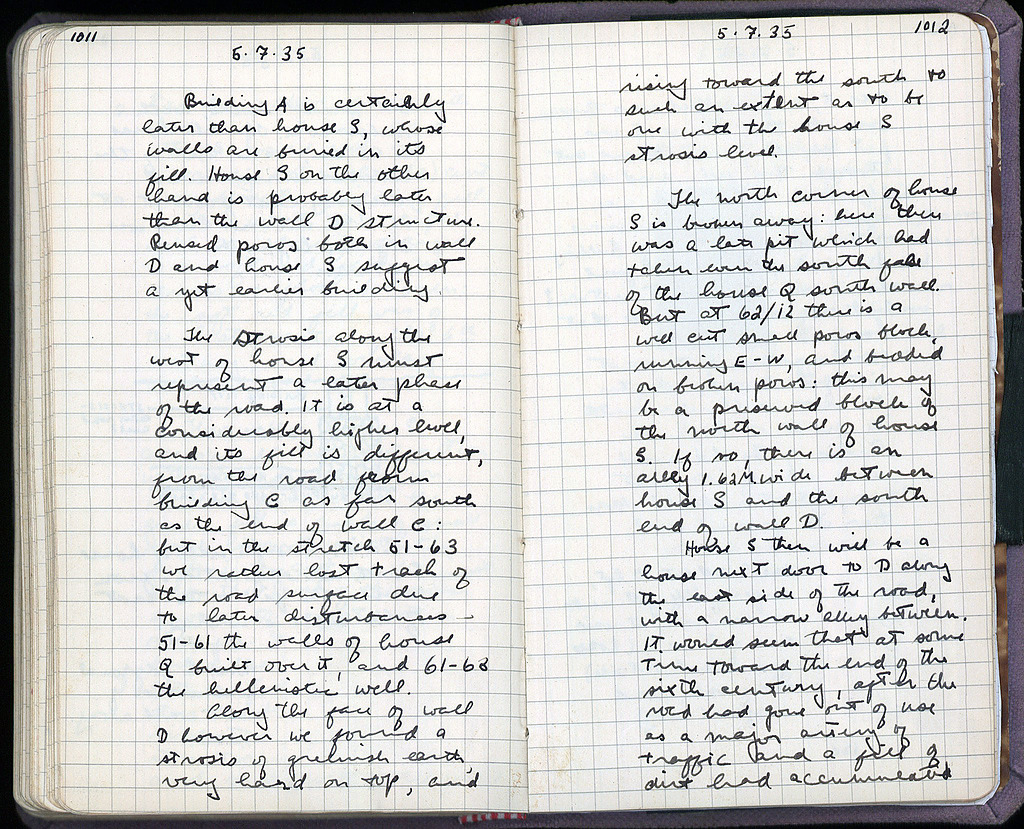 1011
5.7.35
Building A is certainly
later than house S, whose
walls are buried in its
fill. House S on the other
hand is probably later
than the wall D structure.
Reused poros both in wall
D and house S suggest
a yet earlier building.
The strosis along the
west of house S must
represent a later phase
of the road. It is at a
considerably higher level,
and its fill is different,
from the road from
building C as far south
as the end of wall C:
but in the stretch 51-63
we rather lost track of
the road surface due
to later disturbances -
51-61 the walls of house
Q built over it, and 61-63
the hellenistic well.
Along the face of wall
D however we found a
strosis of greenish earth,
very hard on top, and
5.7.35
1012
rising toward the south to
such an extent as to be
one with the house S
strosis level.
The north corner of house
S is broken away: here there
was a late pit which had
taken even the south face
of the house Q south wall.
But at 62/12 there is a
well cut small poros block,
running E-W, and bedded
on broken poros: this may
be a preserved block of
the north wall of house
S. If so, there is an
alley 1.62M wide between
house S and the south
end of wall D.
House S then will be a
house next door to D along
the east side of the road,
with a narrow alley between.
It would seem that at some
time toward the end of the
sixth century, after the
road had gone out of use
as a major artery of
traffic and a fill of
dirt had accumulated